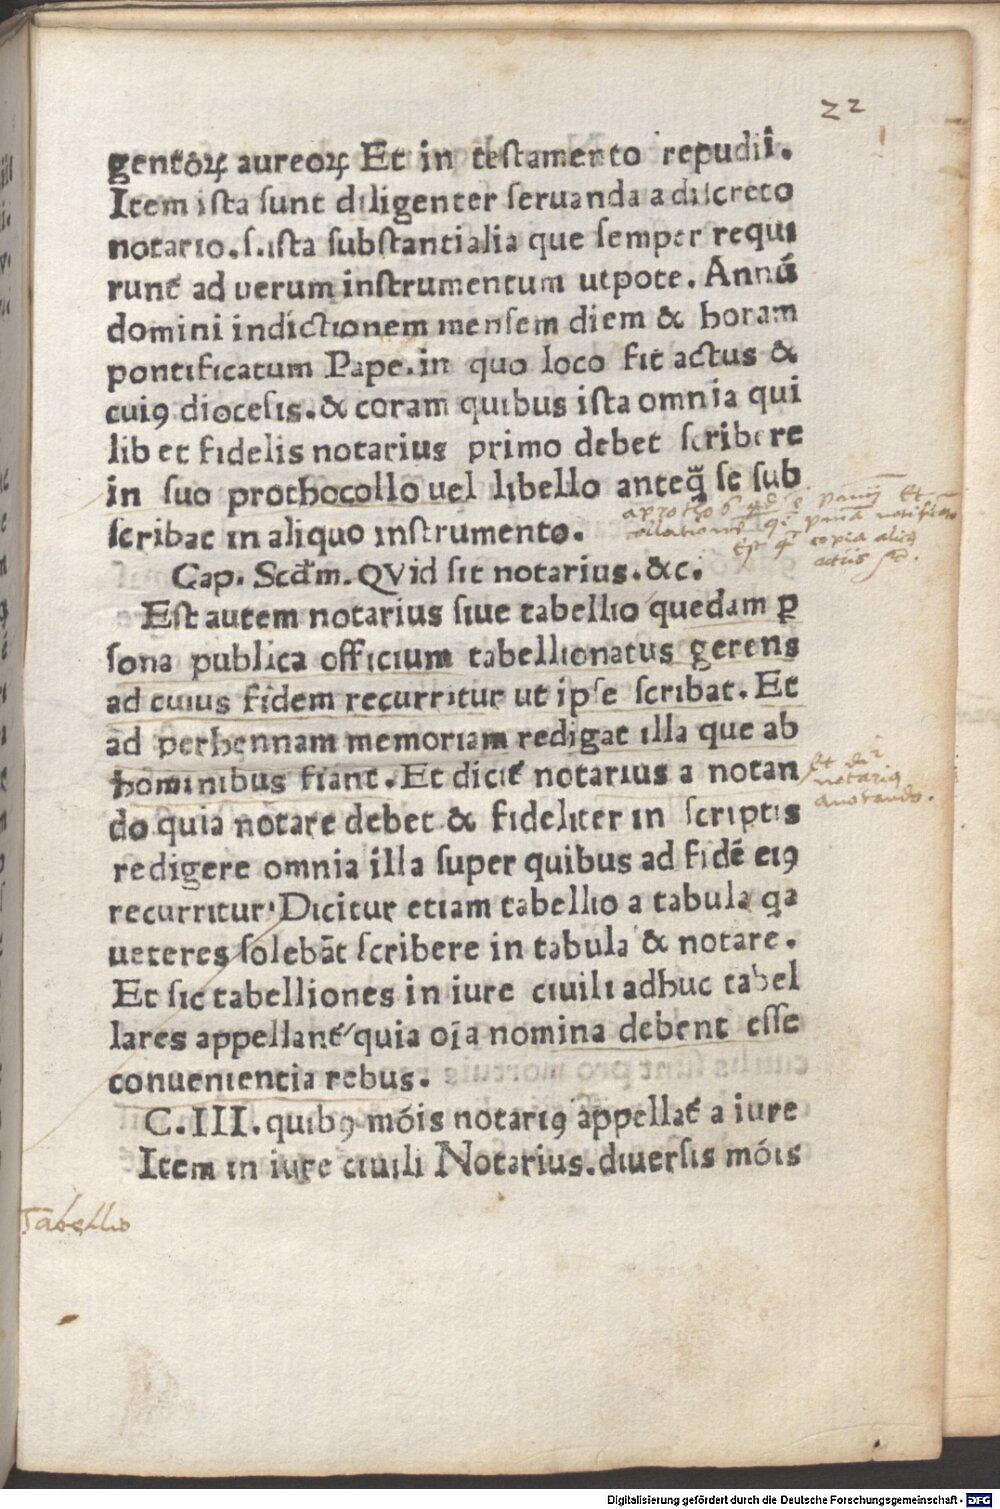 22
gentōꝝ aureoꝝ Et in testamento repudii.
Item ista sunt diligenter seruanda a discreto
notario.s.ista substantialia que semper requi
runt̄ ad uerum instrumentum utpote. Annū
domini indictionem mensem diem & horam
pontificatum Pape.in quo loco fit actus &
cuiꝰ diocesis.& coram quibus ista omnia qui
lib et fidelis notarius primo debet scribere
in suo prothocollo uel libello anteq̄ se sub
scribat in aliquo instrumento.
Cap. Scd̄m. QVid sit notarius.&c.
Est autem notarius siue tabellio quedam ꝑ
sona publica officium tabellionatus gerens
ad cuius fidem recurritur ut ipse scribat. Et
ad perhennam memoriam redigat illa que ab
hominibus fiant. Et dicit̄ notarius a notan
do quia notare debet & fideliter in scriptis
redigere omnia illa super quibus ad fidē eiꝰ
recurritur. Dicitur etiam tabellio a tabula qa
ueteres solebāt scribere in tabula & notare.
Et sic tabelliones in iure ciuili adhuc tabel
lares appellant̄ quia oīa nomina debent esse
conuenientia rebus.
C.III.quibꝰ móis notariꝰ appellat̄ a iure
Item in iure ciuili Notarius.diuersis móis
notariꝰ
a notando.
Tabellio
Digitalisierung gefördert durch die Deutsche Forschungsgemeinschaft - DFG